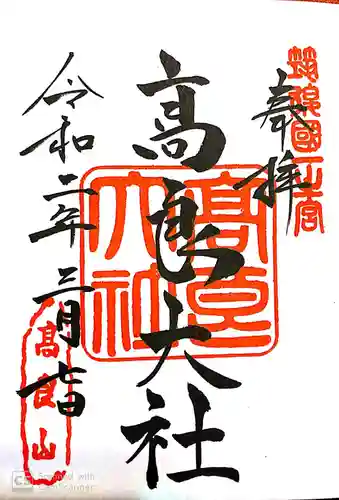 奉拝
筑後國一之宮
高良大社
高良大社
令和二年三月詣
高良山
CS Scanned with
CamScanner